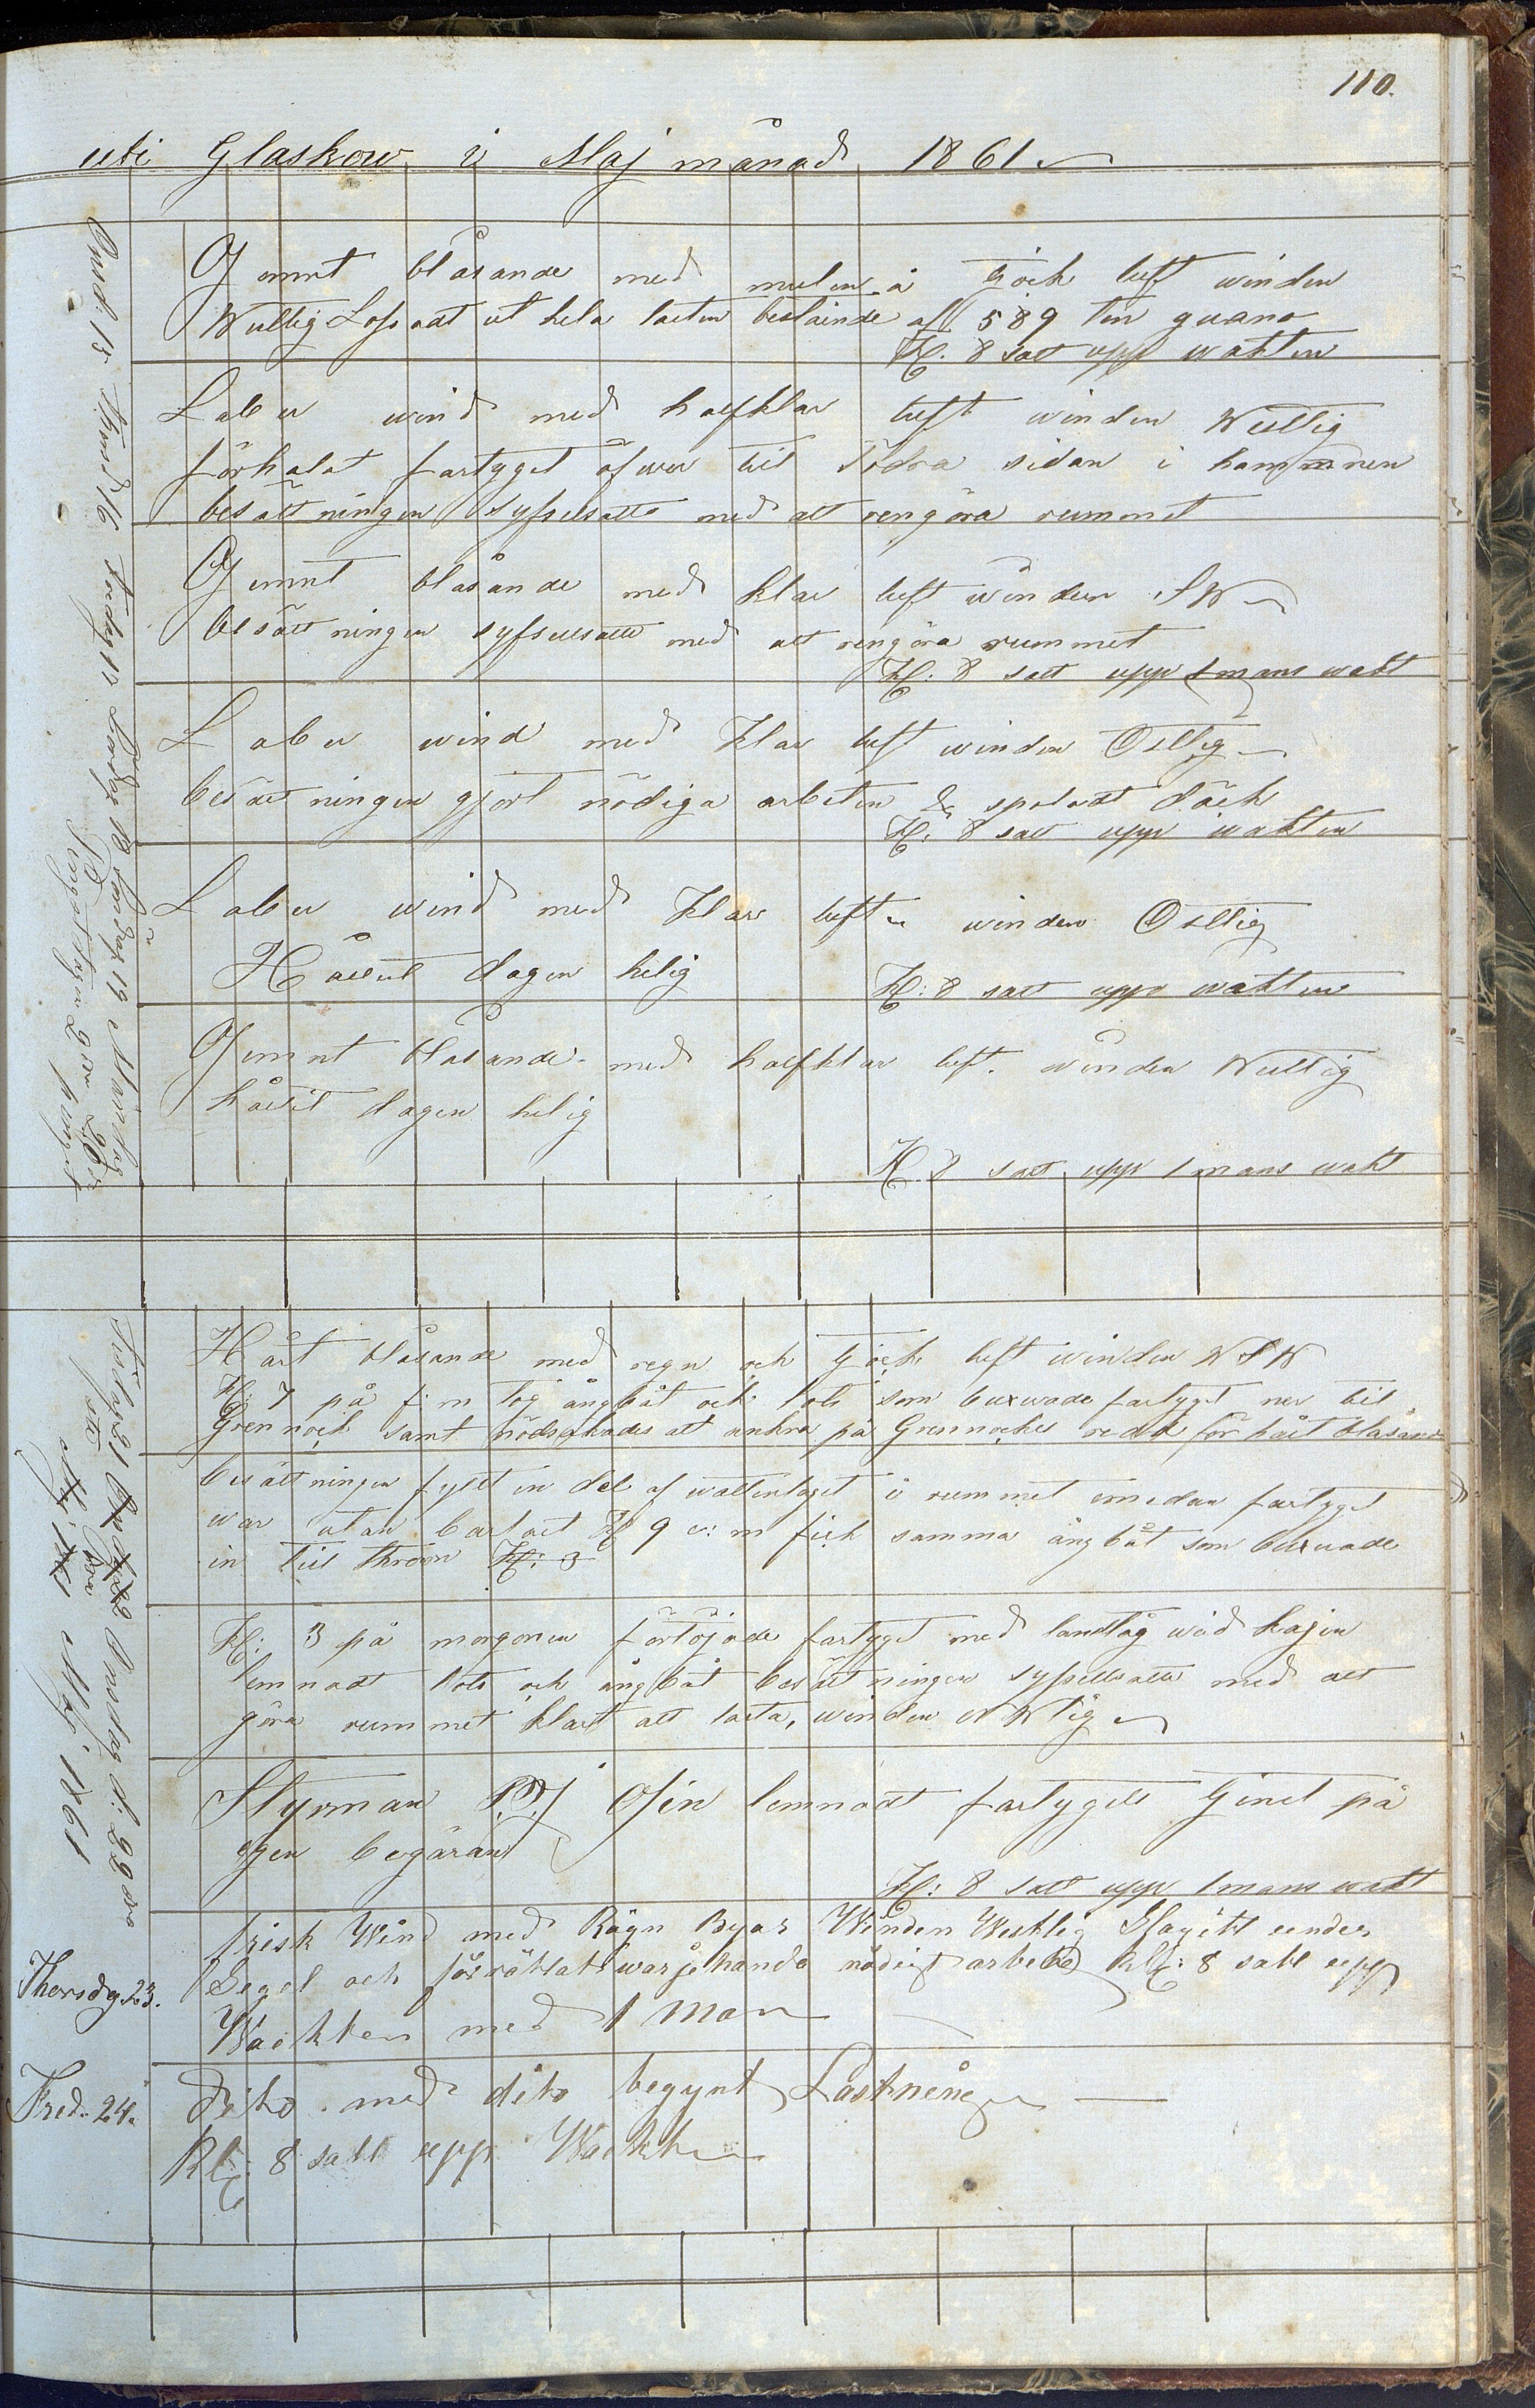 110.
uti Glaskow i Maj månad 1861
Onsd. 15 Thorsd 16 Fredag 17 Lördag 18 Söndag 19 Måndag 20
Pingstdagen 2dra Pingst
Jemnt blåsande med mulen å tjock luft winden
Westlig Lossadt ut hela lasten bestående af 589 ton guano
Kl. 8 satt upp wakten
Laber wind med halfklar luft winden Westlig
förhalat fartyget öfwer till Södra sidan i hammnen
besättningen sysselsatte med att rengöra rummet
Jemnt blåsande med klar luft winden SW
besättningen sysselsatte med att rengöra rummet
Kl: 8 satt upp 1 mans wakt
Laber wind med klar luft winden Ostlig
besättningen gjort nödiga arbeten & spoladt däck
Kl: 8 satt upp wakten
Laber wind med klar luft winden Ostlig
Hållit dagen helig
Kl: 8 satt upp wakten
Jemnt blåsande med halfklar luft. winden Westlig
hållit dagen helig
Kl. 8 satt upp 1 mans wakt
Tisdag 21 sta Onsdag d: 22 dra
Maj 1861
Hårt blåsande med regn och tjock luft winden WSW
Kl: 7 på f:m tog ångbåt och lots som buxerade fartyget ner till
Grennock samt nödsakades att ankra på Grennockes redd för hårt blåsand
besättningen fyllt in del af wattenlaget i rummet emedan fartyget
war utan barlast Kl 9 e:m fick samma ångbåt som buxerade
in till Throon Kl: 3
Kl: 3 på morgonen förtöjade fartyget med landtåg wid kajen
lemnadt lots och ångbåt besättningen sysselsatte med att
göra rummet klart att lasta, winden NWlig
Styrman P.J. Ofin lemnadt fartygets tjenst på
egen begäran
Kl: 8 satt upp 1 mans wakt
Thorsdg 23.
frisk Wind med Rägn Byar Winden Westlig Slagitt under
Segel och förrättat warjehanda nödigt arbete Kl: 8 satt upp
Wackten med 1 Man
Fred. 24.
dito med dito begynt Lastning
Kl: 8 satt upp Wackten